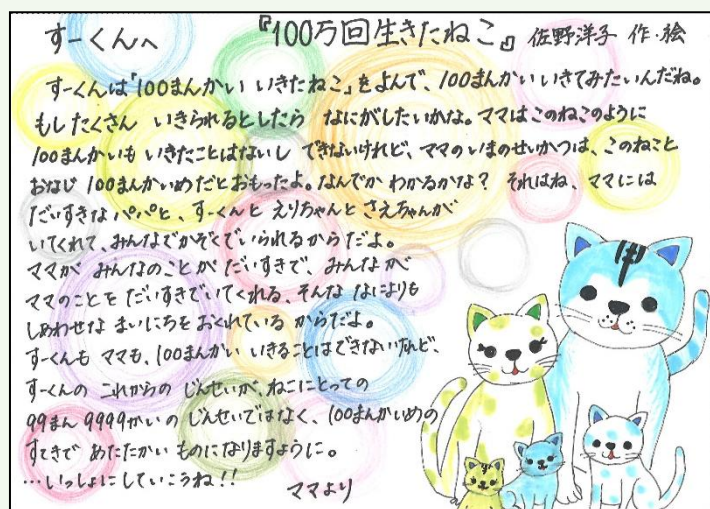 すーくんへ 『100万回生きたねこ』 佐野洋子 作・絵
すーくんは「100まんかい いきたねこ」をよんで、100まんかい いきてみたいんだね。
もし たくさん いきられるとしたら なにがしたいかな。ママはこのねこのように
100まんかいも いきたことはないし できないけれど、ママのいまのせいかつは、このねこと
おなじ 100まんかいめだとおもったよ。なんでか わかるかな? それはね、ママには
だいすきな パパと、すーくんと えりちゃんと さえちゃんが
いてくれて、みんなでかぞくでいられるからだよ。
ママが みんなのことが だいすきで、みんなが
ママのことを だいすきでいてくれる、そんな なによりも
しあわせな まいにちを おくれている からだよ。
すーくんも ママも、100まんかい いきることはできないけれど、
すーくんの これからの じんせいが、ねこにとっての
99まん9999かいの じんせいではなく、100まんかいめの
すてきで あたたかい ものになりますように。
…いっしょにしていこうね!!
ママより